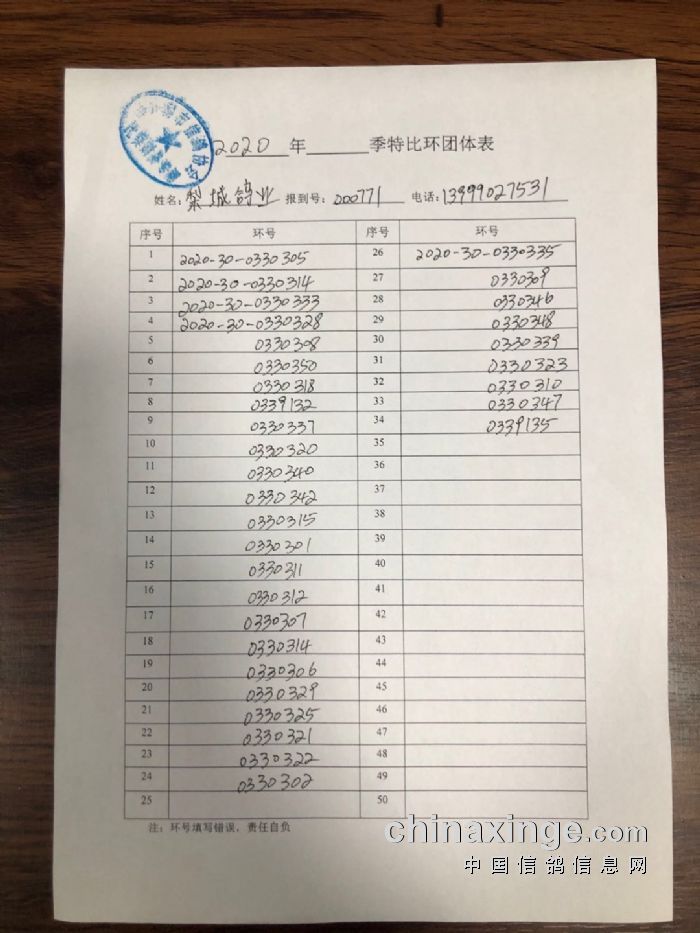 2020 年______季特比环团体表
姓名:梨城鸽业 报到号:000771 电话:13999027531
序号 环号 序号 环号
1 2020-30-0330305 26 2020-30-0330335
2 2020-30-0330314 27 0330309
3 2020-30-0330333 28 0330346
4 2020-30-0330328 29 0330348
5 0330308 30 0330339
6 0330350 31 0330323
7 0330318 32 0330310
8 0339132 33 0330347
9 0330337 34 0339135
10 0330320 35
11 0330340 36
12 0330342 37
13 0330315 38
14 0330301 39
15 0330311 40
16 0330312 41
17 0330307 42
18 0330314 43
19 0330306 44
20 0330329 45
21 0330325 46
22 0330321 47
23 0330322 48
24 0330302 49
25 50
注:环号填写错误,责任自负
chinaxinge.com
中国信鸽信息网